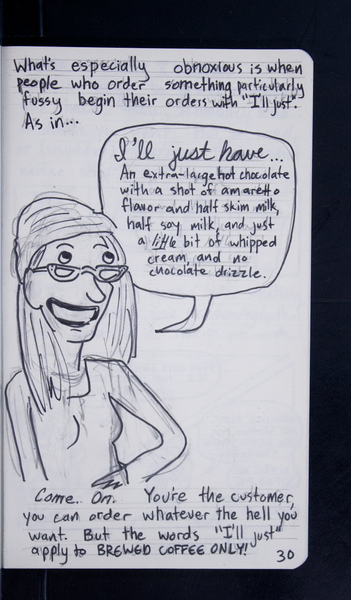 What's especially obnoxious is when
people who order something particularly
fussy begin their orders with "I'll just".
As in...
I'll just have...
An extra-large hot chocolate
with a shot of amaretto
flavor and half skim milk,
half soy milk, and just
a little bit of whipped
cream, and no
chocolate drizzle.
Come. On. You're the customer,
you can order whatever the hell you
want. But the words "I'll just"
apply to BREWED COFFEE ONLY!
30